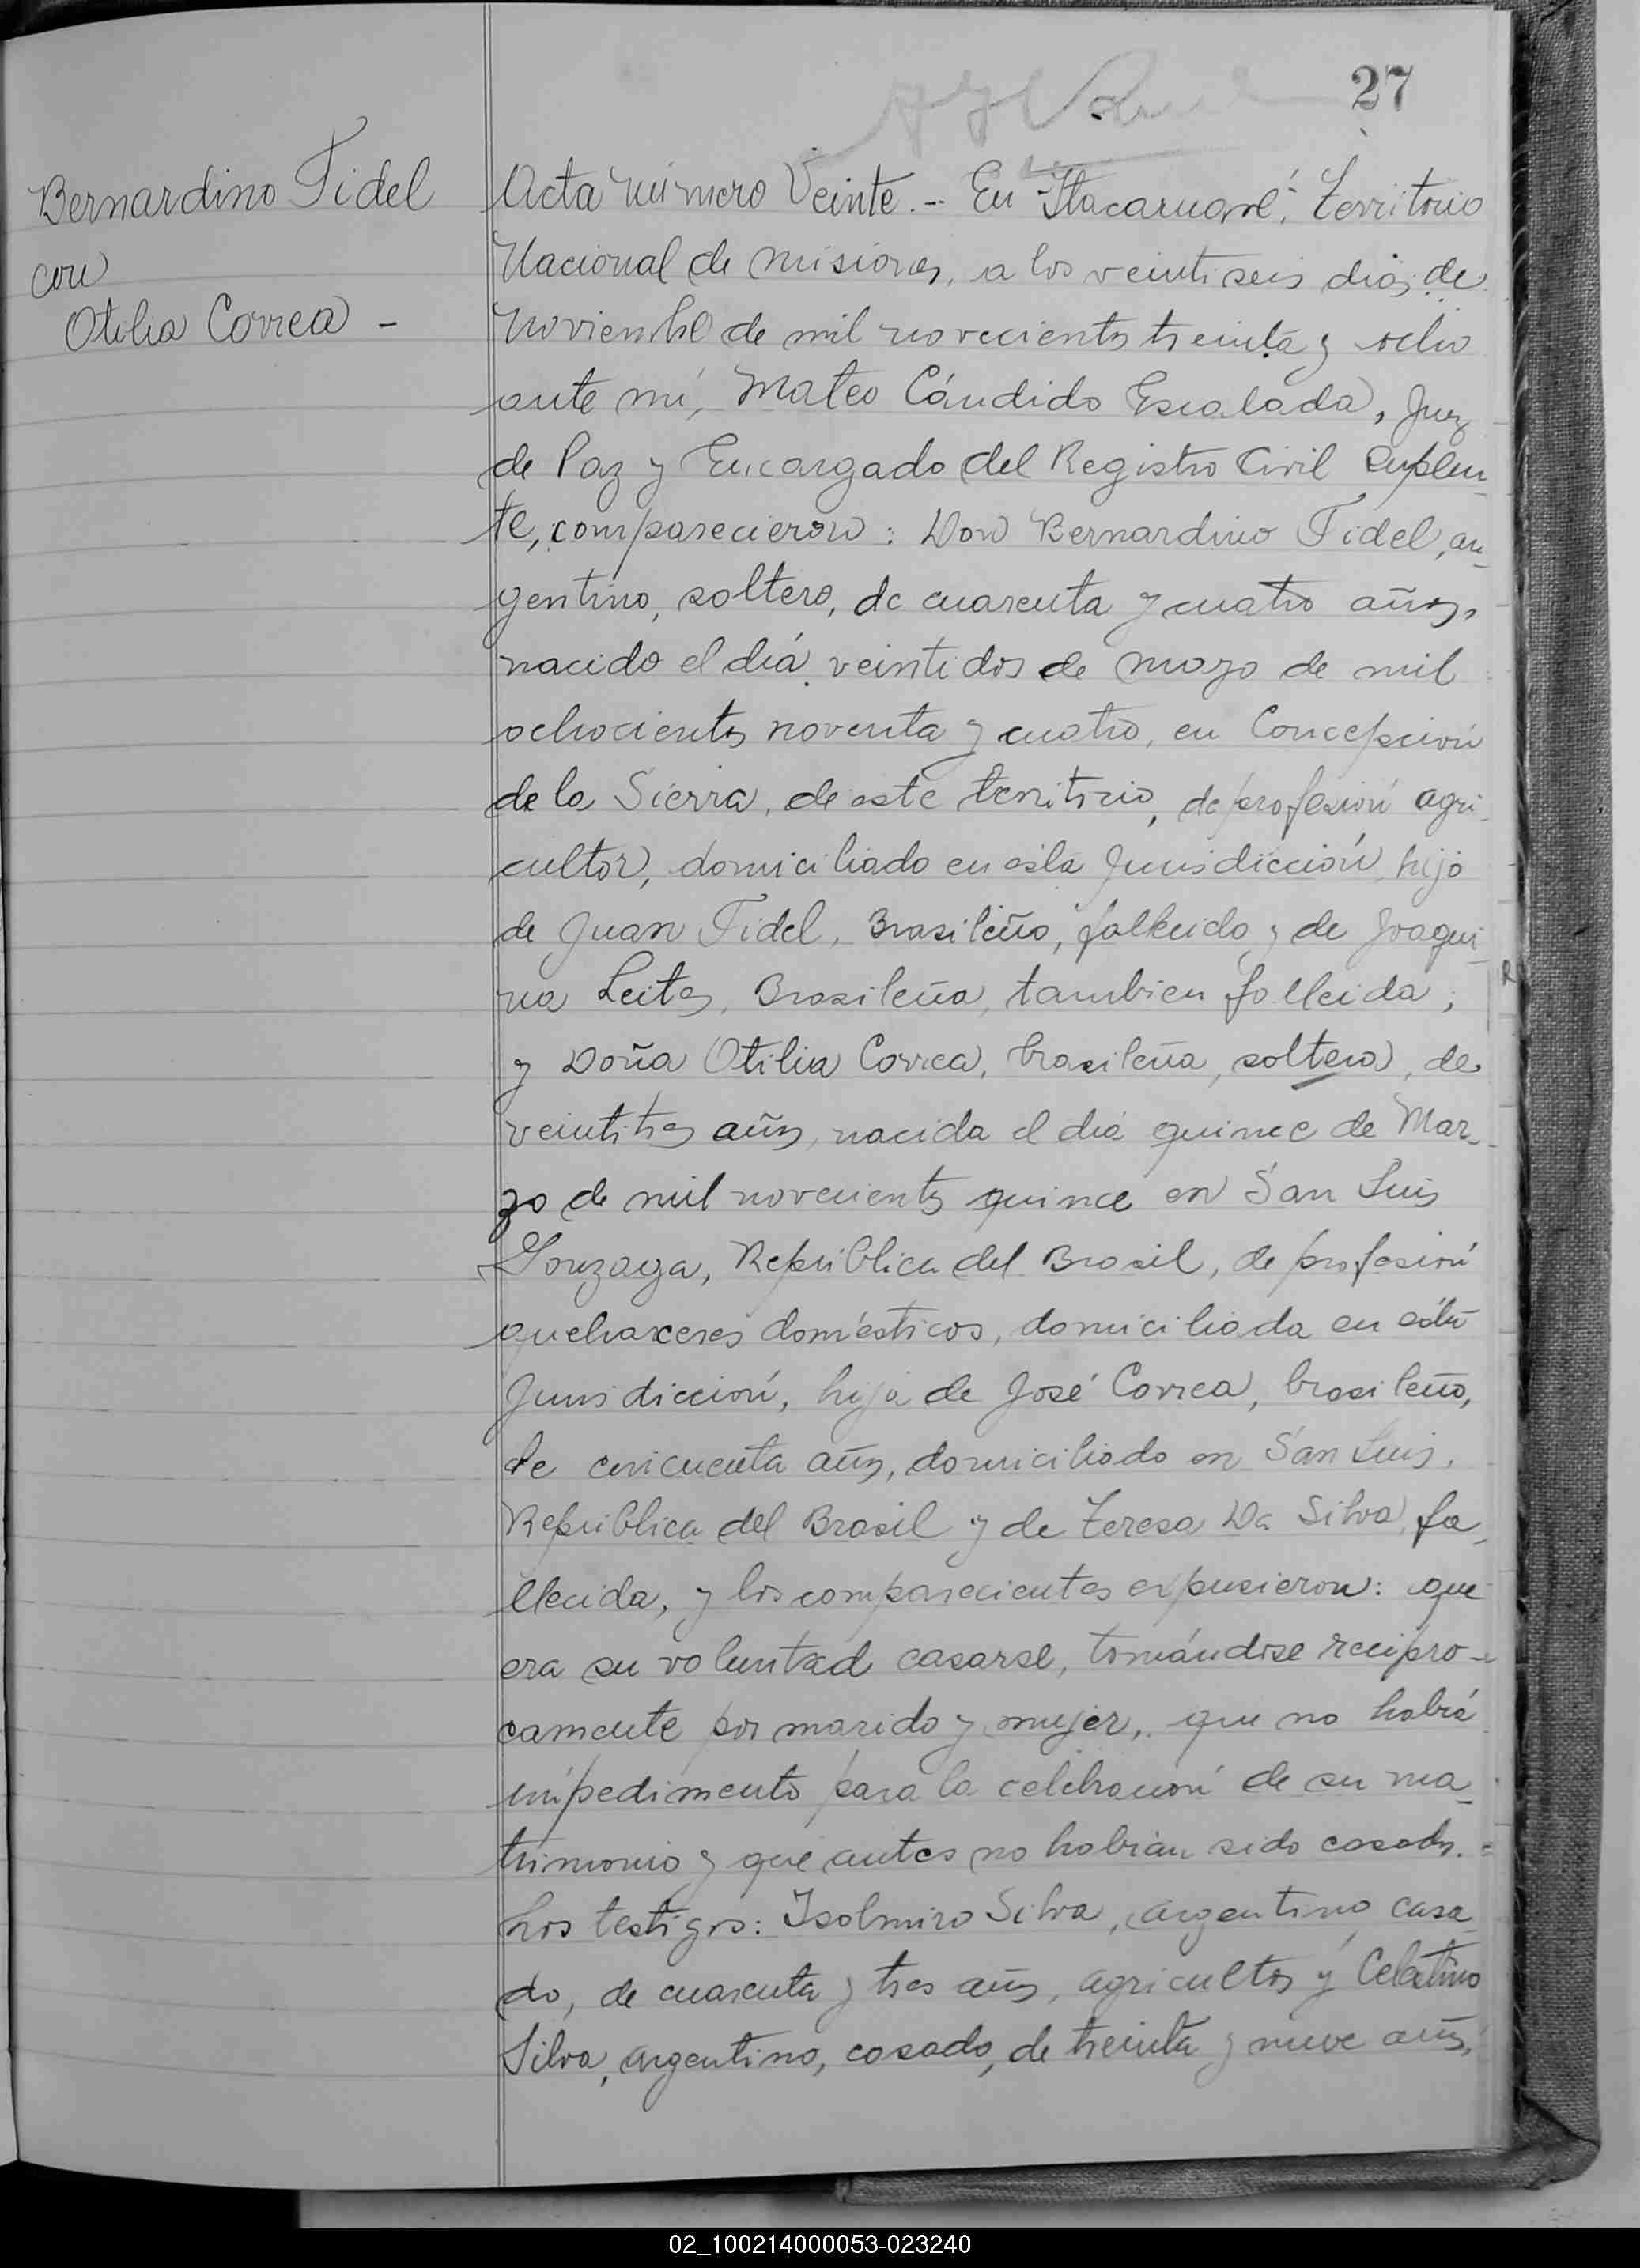 27
Bernardino Fidel
con
Otilia Correa -
Acta número Veinte. - En Itacaruaré, Territorio
Nacional de Misiones, a los veintiseis dias de
Noviembre de mil novecientos treinta y ocho
ante mi, Mateo Cándido Escalada, Juez
de Paz y Encargado del Registro Civil Suplen-
te, comparecieron: Don Bernardino Fidel, ar-
gentino, soltero, de cuarenta y cuatro años,
nacido el diá veintidos de mayo de mil
ochocientos noventa y cuatro, en Concepción
de la Sierra, de este territorio, de profesión agri-
cultor, domiciliado en esta Jurisdicción, hijo
de Juan Fidel, Brasileño, fallecido y de Joaqui-
na Leites, Brasileña, tambien fallecida;
y Doña Otilia Correa, brasileña, soltera, de
veintitres años, nacida el diá quince de Mar-
zo de mil novecientos quince en San Luis
Gonzaga, República del Brasil, de profesión
quehaceres domésticos, domiciliada en esta
Jurisdicción, hija de José Correa, brasileño,
de cincuenta años, domiciliado en San Luis,
República del Brasil y de Teresa Da Silva, fa-
llecida, y los comparecientes expusieron: que
era su voluntad casarse, tomándose recípro-
camente por marido y mujer, que no habiá
impedimento para la celebración de su ma-
trimonio y que antes no habian sido casados. =
Los testigos: Isolmiro Silva, argentino, casa-
do, de cuarenta y tres años, agricultor y Celestino
Silva, argentino, casado, de treinta y nueve años,
02_100214000053-023240